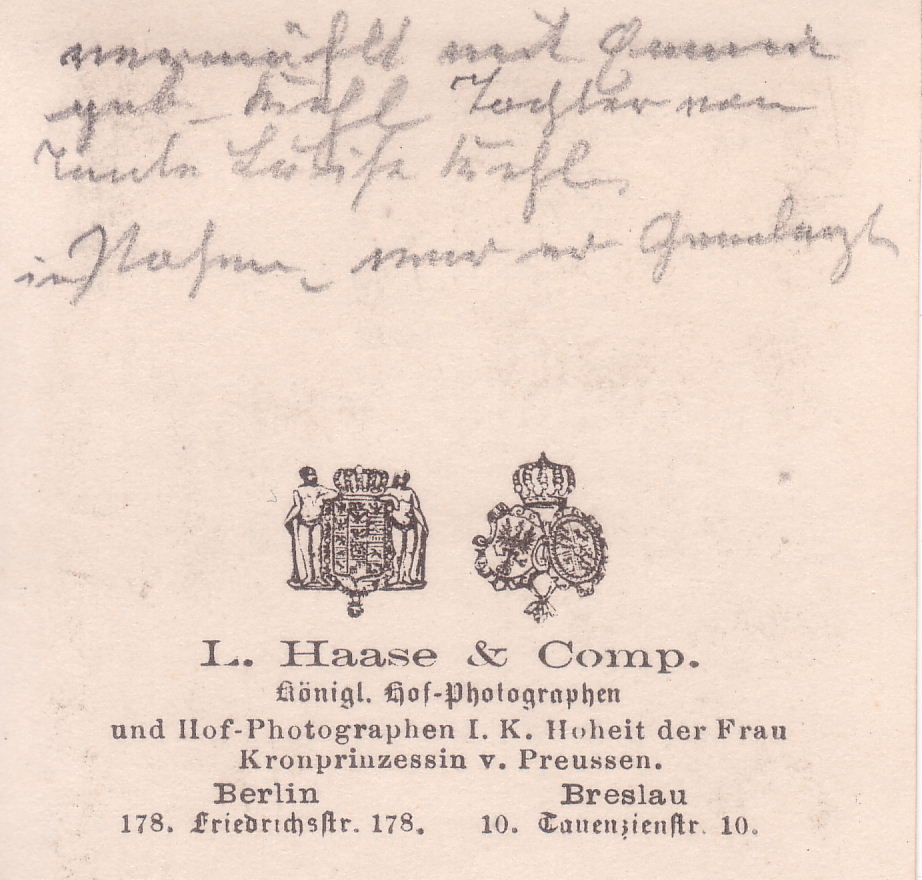 vermählt mit
geb. Kuhl Tochter von
Tante Luise Kuhl
in war er
L. Haase & Comp.
Königl. Hof-Photographen
und Hof-Photographen I. K. Hoheit der Frau
Kronprinzessin v. Preussen.
Berlin Breslau
178. Friedrichsstr. 178. 10. Tauenzienstr. 10.